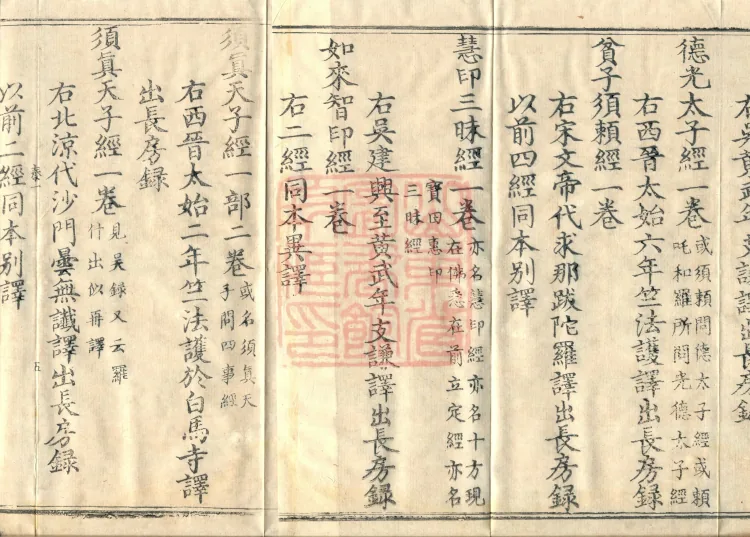 德光太子經一卷 或須頼問德太子經或頼
吒和羅所問光德太子經
右西晉太始六年竺法護譯出長房録
貧子須頼經一卷
右宋文帝代求那跋陀羅譯出長房録
以前四經同本別譯
慧印三昧經一卷 亦名慧印經亦名十方現
在佛悉在前立定經亦名
寶田惠印
三昧經
右吳建興至黄武年支謙譯出長房録
如來智印經一卷
右二經同本異譯
須眞天子經一部二卷 或名須眞天
子問四事經
右西晉太始二年竺法護於白馬寺譯
出長房録
須眞天子經一卷 見吳録又云羅
什出似再譯
右北涼代沙門曇無讖譯出長房録
卷一 五
以前二經同本別譯